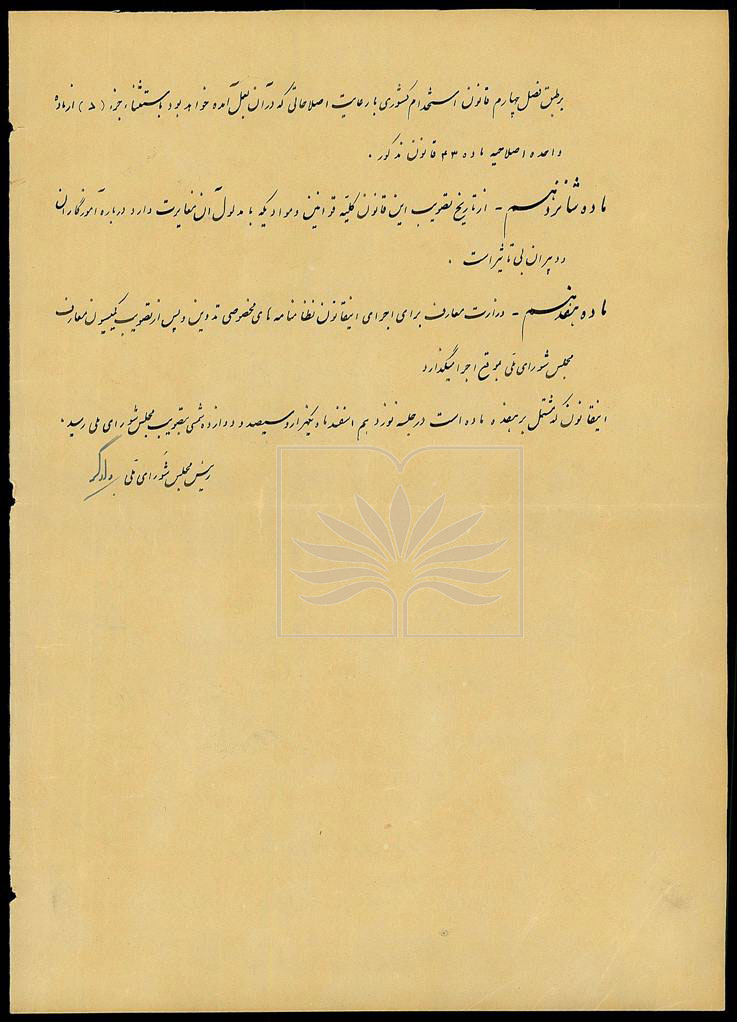 بر طبق فصل چهارم قانون استخدام کشوری با رعایت اصلاحاتی که در آن بعمل آمده خواهد بود باستثناء جزء (۸) از ماده
واحده اصلاحیه ماده ۴۳ قانون مذکور .
ماده شانزدهم - از تاریخ تصویب این قانون کلیّه قوانین و موادیکه با مدلول آن مغایرت دارد درباره آموزگاران
و دبیران بی تأثیر است .
ماده هفدهم - وزارت معارف برای اجرای اینقانون نظامنامه های مخصوصی تدوین و پس از تصویب کمیسیون معارف
مجلس شورای ملّی بموقع اجرا میگذارد
اینقانون که مشتمل بر هفده ماده است در جلسه نوزدهم اسفند ماه یکهزار و سیصد و دوازده شمسی بتصویب مجلس شورای ملی رسید .
رئیس مجلس شورای ملّی دادگر